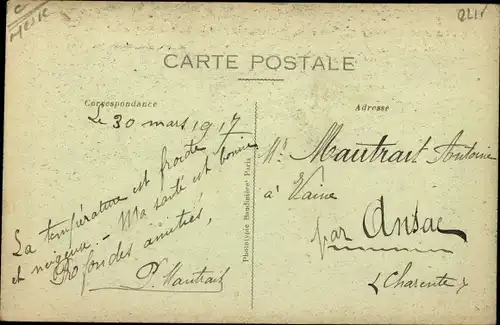 CARTE POSTALE
Correspondance
Le 30 mars 1917
La température est froide
et neigeuse. - Ma santé est bonne
Profondes amitiés,
P. Mautrait
Phototypie Baudinière Paris
Adresse
Mr. Mautrait Antoine
à
par Ansac
(Charente)